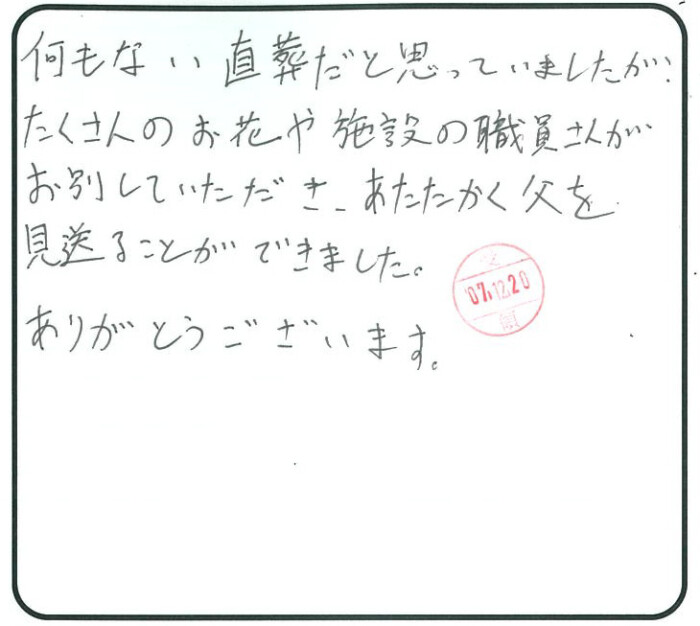 何もない直葬だと思っていましたが、
たくさんのお花や施設の職員さんが
お別していただき、あたたかく父を
見送ることができました。
'07.12.20
ありがとうございます。